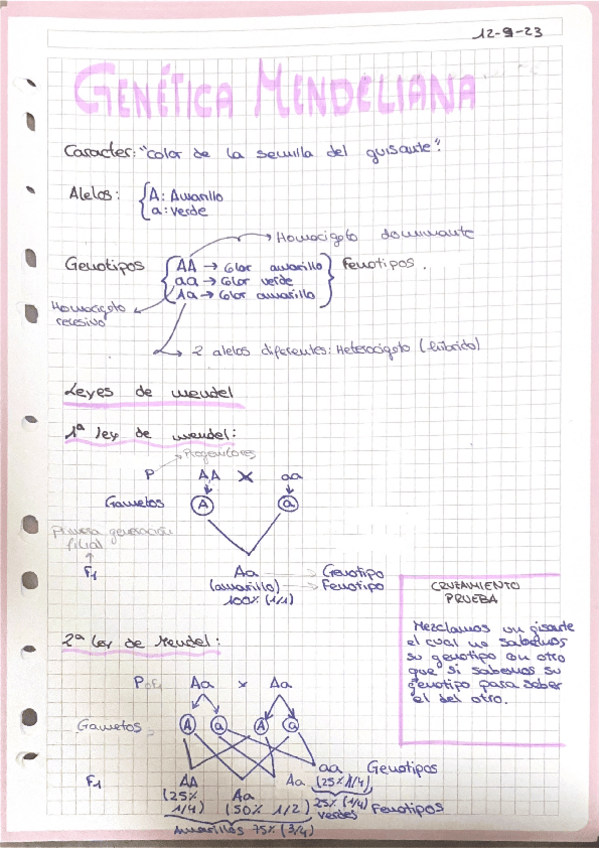 12-9-23
GENÉTICA MENDELIANA
Caracter: "color de la semilla del guisante".
Alelos: { A: Amarillo
a: verde
Homocigoto dominante
Genotipos { AA → Color amarillo } Fenotipos.
aa → Color verde
Aa → Color amarillo
Homocigoto
recesivo
2 alelos diferentes: Heterocigoto (híbrido)
Leyes de mendel
1ª ley de mendel:
Progenitores
P AA X aa
Gametos A a
primera generación
filial
F1 Aa → Genotipo
(amarillo) → Fenotipo
100% (1/1)
CRUZAMIENTO
PRUEBA
Mezclamos un gisante
el cual no sabemos
su genotipo con otro
que si sabemos su
genotipo para saber
el del otro.
2ª Ley de Mendel:
P o F1 Aa x Aa
Gametos A a A a
F1 AA Aa Aa aa Genotipos
(25% 1/4) (50% 1/2) (25% 1/4)
25% (1/4) verdes Fenotipos
Amarillos 75% (3/4)